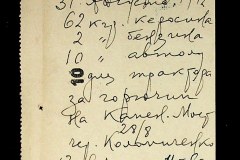 31 Августа
62 кгр. керосина
2 " бензина
10 " автолу
10 для трактора
за горючим
на Камен. Мост
28/8
Коломиченко